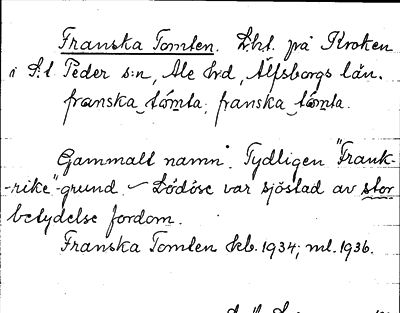 Franska Tomten. Lht. på Kroken
i S:t Peder s:n, Ale hrd, Älfsborgs län.
franska tómta, franska tòmta.
Gammalt namn. Tydligen "Frank-
-rike"-grund. – Lödöse var sjöstad av stor
betydelse fordom.
Franska Tomten skb. 1934; ml. 1936.